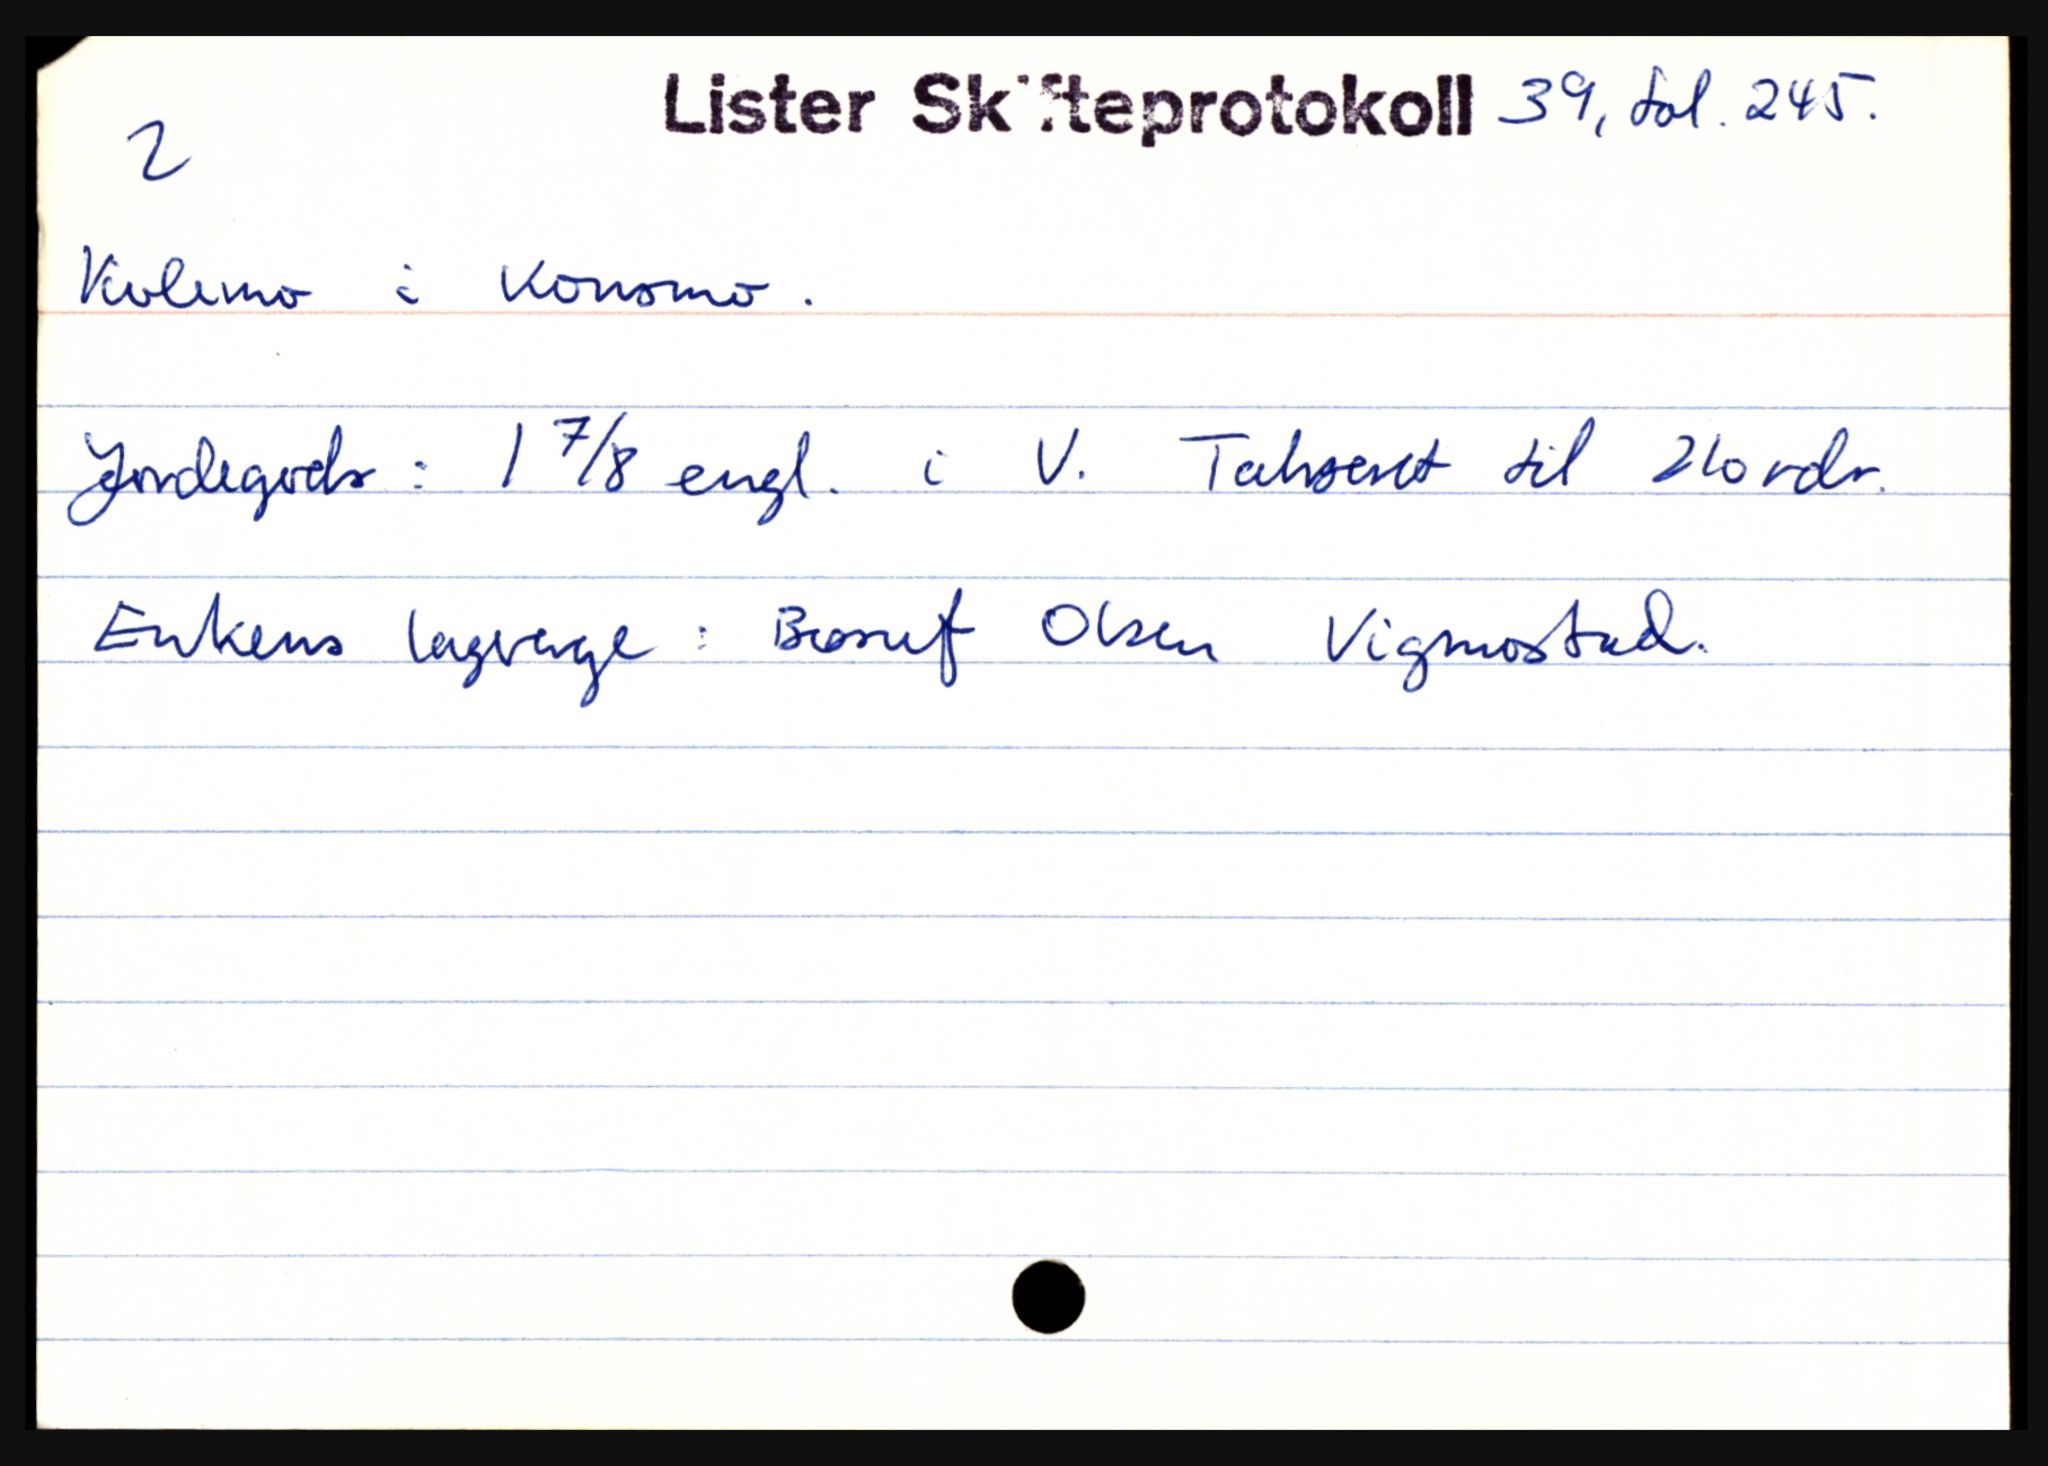 Lister Skifteprotokoll 39, fol. 245.
2
Kvlemo i Konsmo.
Jordegods: 1 7/8 engl. i V. Tahseret til 210 rdr.
Enkens lagverge: Brønuf Olsen Vigmostad.